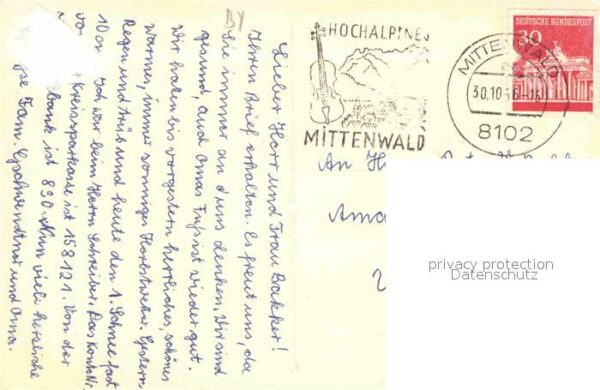 BY
Lieber Herr und Frau Bakker!
Ihren Brief erhalten. Es freut uns, da
Sie immer an uns denken. Wir sind
gesund, auch Omas Fuß ist wieder gut.
Wir haben bis vorgestern herrliches, schönes
warmes, immer sonniges Herbstwetter. Gestern
Regen und trüb und heute den 1. Schnee fast
10 cm. Ich war beim Herrn Schreiber. Das Konto N.
vo Kreissparkasse ist 158121. Von der
Bank ist 830. Nun viele herzliche
Fam. Gschwendtner und Oma.
HOCHALPINES
MITTENWALD
MITTENWALD
30.10.
8102
DEUTSCHE BUNDESPOST
30
An
privacy protection
Datenschutz